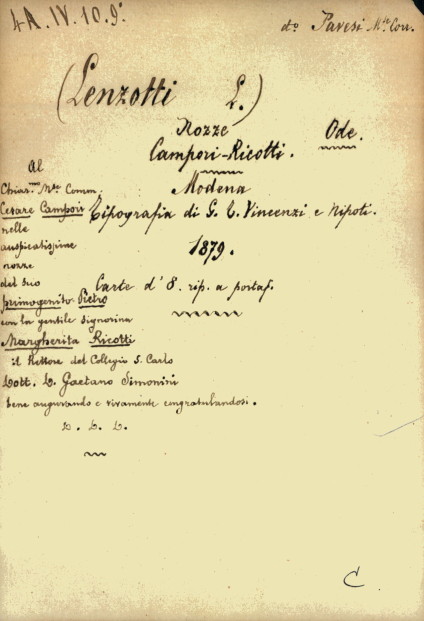 4A. IV. 10. 9º
dº Pavesi Mse Corr.
(Lenzotti L.)
Nozze Ode.
Campori-Ricotti.
Modena
Tipografia di G. T. Vincenzi e Nipoti.
1879.
Carte d' 8. rip. a portaf.
Al
Chiar.mo Mse Comm:
Cesare Campori
nelle
auspicatissime
nozze
del suo
primogenito Pietro
con la gentile signorina
Margherita Ricotti
il Rettore del Collegio S. Carlo
Dott. D. Gaetano Simonini
bene augurando e vivamente congratulandosi.
D. D. D.
C